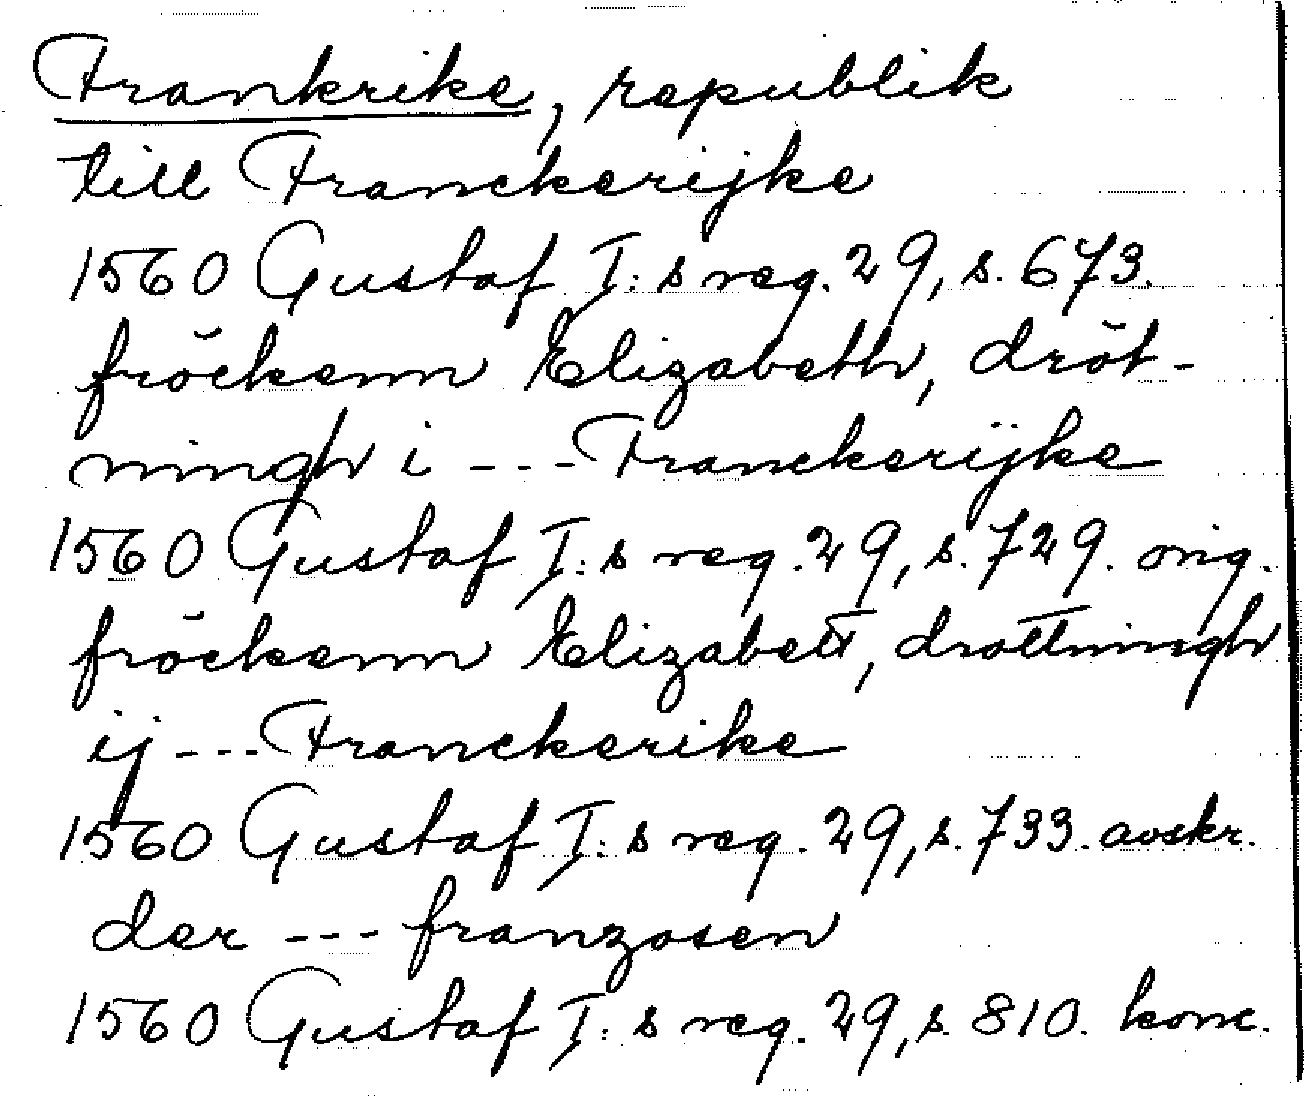 Frankrike, republik
till Franckerijke
1560 Gustaf I:s reg. 29, s. 673.
fröckenn Elizabeth, dröt-
ningh i --- Franckerijke
1560 Gustaf I:s reg. 29, s. 729. orig.
fröckenn Elizabett, drottningh
ij --- Franckerike
1560 Gustaf I:s reg. 29, s. 733. avskr.
der --- franzosen
1560 Gustaf I:s reg. 29, s. 810. konc.